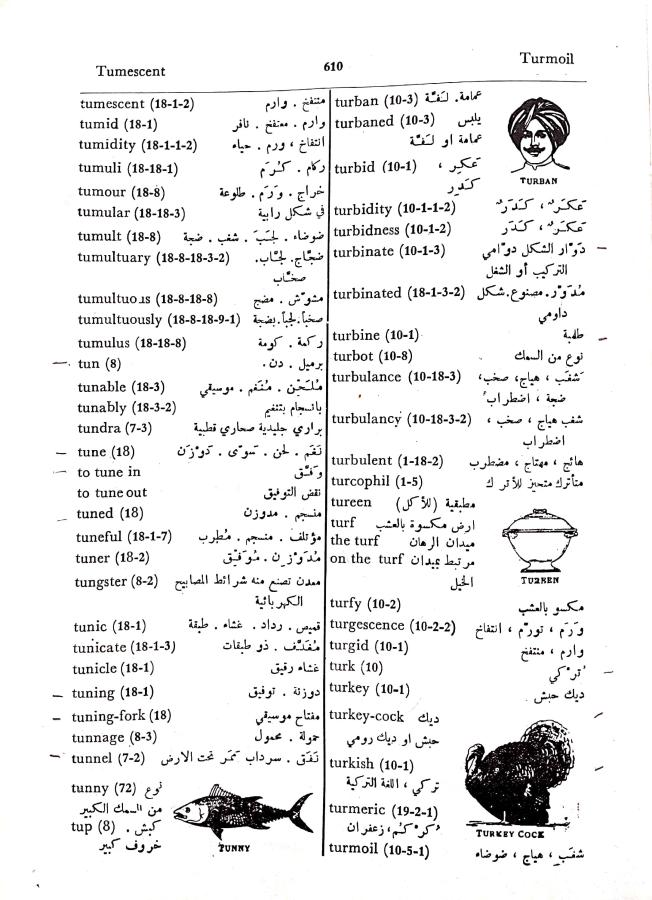 Tumescent
610
Turmoil
tumescent (18-1-2) متنفخ . وارم
tumid (18-1) وارم . منتفخ . نافر
tumidity (18-1-1-2) انتفاخ ، ورم . حياء
tumuli (18-18-1) ركام . كُرَم
tumour (18-8) خراج . وَرَم . طلوعة
tumular (18-18-3) في شكل رابية
tumult (18-8) ضوضاء . لجَبَ . شغب . ضجة
tumultuary (18-8-18-3-2) ضجَّاج. لجَّاب.
صخَّاب
tumultuous (18-8-18-8) مشوّش . مضج
tumultuously (18-8-18-9-1) صخباً. لجباً. بضجة
tumulus (18-18-8) ركمة . كومة
tun (8) برميل . دن .
tunable (18-3) مُلَحَّن . مُنَغَّم . موسيقي
tunably (18-3-2) بانسجام بتنغيم
tundra (7-3) براري جليدية صحاري قطبية
tune (18) نَغَم . لحن . سوّى . دَوْزَن
to tune in وَفَّق
to tune out نقض التوفيق
tuned (18) منسجم . مدوزن
tuneful (18-1-7) مؤتلف . منسجم . مُطرِب
tuner (18-2) مُدَوْزِن . مُوَفِّق
tungster (8-2) معدن تصنع منه شرائط المصابيح
الكهربائية
tunic (18-1) قميص . رداد . غشاء . طبقة
tunicate (18-1-3) مُغَلَّف . ذو طبقات
tunicle (18-1) غشاء رقيق
tuning (18-1) دوزنة . توفيق
tuning-fork (18) مفتاح موسيقي
tunnage (8-3) حمولة . محمول
tunnel (7-2) نَفَق . سرداب ممَر تحت الارض
tunny (72) نوع
من السمك الكبير
tup (8) كبش .
خروف كبير
TUNNY
turban (10-3) عمامة. لَفَّة
turbaned (10-3) يلبس
عمامة او لَفَّة
turbid (10-1) عَكِر ،
كَدِر
TURBAN
turbidity (10-1-1-2) عَكَرٌ ، كَدَرٌ
turbidness (10-1-2) عَكَرٌ ، كَدَر
turbinate (10-1-3) دَوّار الشكل دوّامي
التركيب أو الشغل
turbinated (18-1-3-2) مُدَوّر. مصنوع. شكل
داومي
turbine (10-1) طلمبة
turbot (10-8) نوع من السمك
turbulance (10-18-3) شَغَب ، هياج، صخب،
ضجة ، اضطراب
turbulancy (10-18-3-2) شغب هياج ، صخب ،
اضطراب
turbulent (1-18-2) هائج ، مهتاج ، مضطرب
turcophil (1-5) متأترك متحيز للأتراك
tureen مطبقية (للأكل)
turf ارض مكسوة بالعشب
the turf ميدان الرهان
on the turf مرتبط بميدان
الخيل
TUREEN
turfy (10-2) مكسو بالعشب
turgescence (10-2-2) وَرَم ، تورّم ، انتفاخ
turgid (10-1) وارم ، منتفخ
turk (10) تُرْكي
turkey (10-1) ديك حبش
turkey-cock ديك
حبش او ديك رومي
turkish (10-1)
تركي ، اللغة التركية
turmeric (19-2-1)
كُركُم، زعفران
TURKEY COCK
turmoil (10-5-1) شغَب ، هياج ، ضوضاء